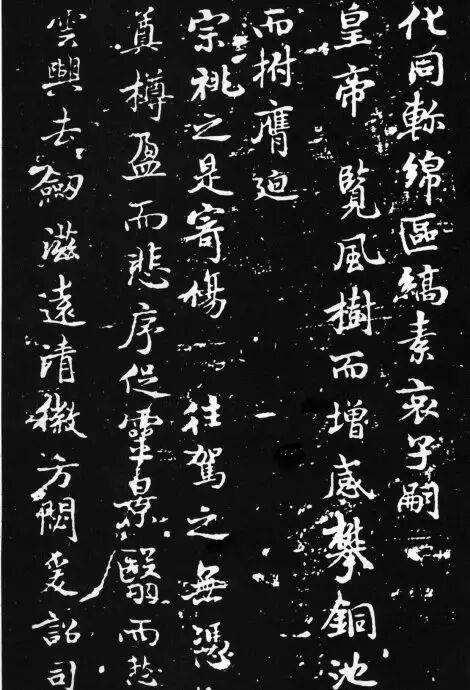 化同軫綿區縞素哀子嗣
皇帝 覽風樹而增感攀銅池
而拊膺迫
宗祧之是寄傷 往駕之無憑
奠樽盈而悲序促靈景翳而愁
雲興去劒滋遠清徽方閟爰詔司